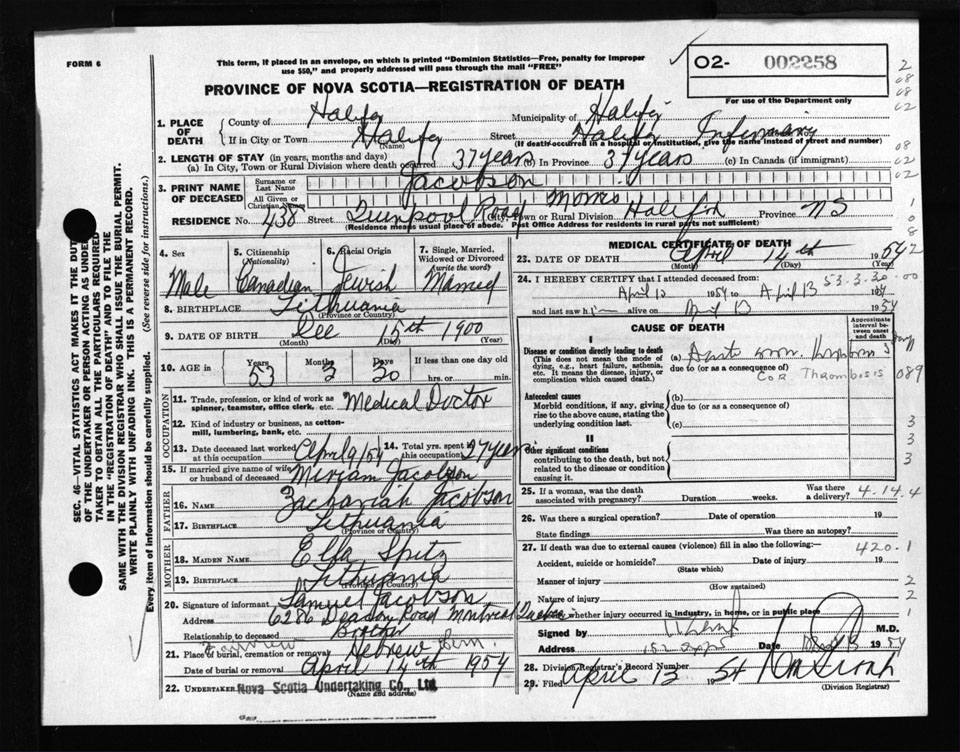 FORM 6
This form, if placed in an envelope, on which is printed "Dominion Statistics—Free, penalty for improper
use $50," and properly addressed will pass through the mail "FREE"
O2- 002258
For use of the Department only
PROVINCE OF NOVA SCOTIA—REGISTRATION OF DEATH
1. PLACE OF DEATH
County of Halifax Municipality of Halifax
If in City or Town Halifax (Name) Street Halifax Infirmary
(If death occurred in a hospital or institution, give the name instead of street and number)
2. LENGTH OF STAY (in years, months and days)
(a) In City, Town or Rural Division where death occurred 37 years In Province 37 years (c) In Canada (if immigrant)
3. PRINT NAME OF DECEASED
Surname or Last Name Jacobson
All Given or Christian Names Morris
RESIDENCE No. 438 Street Road City, Town or Rural Division Halifax Province NS
(Residence means usual place of abode. Post Office Address for residents in rural parts not sufficient)
4. Sex Male
5. Citizenship (Nationality) Canadian
6. Racial Origin Jewish
7. Single, Married, Widowed or Divorced (write the word) Married
8. BIRTHPLACE Lithuania
(Province or Country)
9. DATE OF BIRTH Dec 15th 1900
(Month) (Day) (Year)
10. AGE in Years 53 Months 3 Days 30 If less than one day old
hrs. or min.
OCCUPATION
11. Trade, profession, or kind of work as
spinner, teamster, office clerk, etc. Medical Doctor
12. Kind of industry or business, as cotton-
mill, lumbering, bank, etc.
13. Date deceased last worked at this occupation April 9/54
14. Total yrs. spent in this occupation 27 years
15. If married give name of wife or husband of deceased Miriam Jacobson
FATHER
16. NAME Zachariah Jacobson
17. BIRTHPLACE Lithuania
(Province or Country)
MOTHER
18. MAIDEN NAME Ella Spitz
19. BIRTHPLACE Lithuania
(Province or Country)
20. Signature of informant Samuel Jacobson
Address 6286 Deacon Road Montreal Quebec
Relationship to deceased Brother
21. Place of burial, cremation or removal Hebrew Cem.
Date of burial or removal April 14th 1954
22. UNDERTAKER Nova Scotia Undertaking Co., Ltd.
(Name and address)
MEDICAL CERTIFICATE OF DEATH
23. DATE OF DEATH April 14th 1954
(Month) (Day) (Year)
24. I HEREBY CERTIFY that I attended deceased from:
53-3-30-00
April 10 1954 to April 13 1954
and last saw h alive on April 13 1954
CAUSE OF DEATH
Approximate interval between onset and death
I
Disease or condition directly leading to death (a)
(This does not mean the mode of dying, e.g., heart failure, asthenia, etc. It means the disease, injury, or complication which caused death.)
due to (or as a consequence of)
Cor. Thrombosis 089
Antecedent causes
Morbid conditions, if any, giving rise to the above cause, stating the underlying condition last.
(b)
due to (or as a consequence of)
(c)
II
Other significant conditions
contributing to the death, but not related to the disease or condition causing it.
25. If a woman, was the death associated with pregnancy? Duration weeks. Was there a delivery? 4-14-4
26. Was there a surgical operation? Date of operation 19
State findings Was there an autopsy?
27. If death was due to external causes (violence) fill in also the following:
420.1
Accident, suicide or homicide? Date of injury 19
(State which)
Manner of injury
(How sustained)
Nature of injury
whether injury occurred in industry, in home, or in public place
Signed by M.D.
Address Date 19 54
28. Division Registrar's Record Number
29. Filed April 13 1954
(Division Registrar)
SEC. 46—VITAL STATISTICS ACT MAKES IT THE DUTY
OF THE UNDERTAKER OR PERSON ACTING AS UNDER-
TAKER TO OBTAIN ALL THE PARTICULARS REQUIRED
IN THE "REGISTRATION OF DEATH" AND TO FILE THE
SAME WITH THE DIVISION REGISTRAR WHO SHALL ISSUE THE BURIAL PERMIT.
WRITE PLAINLY WITH UNFADING INK. THIS IS A PERMANENT RECORD.
Every item of information should be carefully supplied. (See reverse side for instructions.)